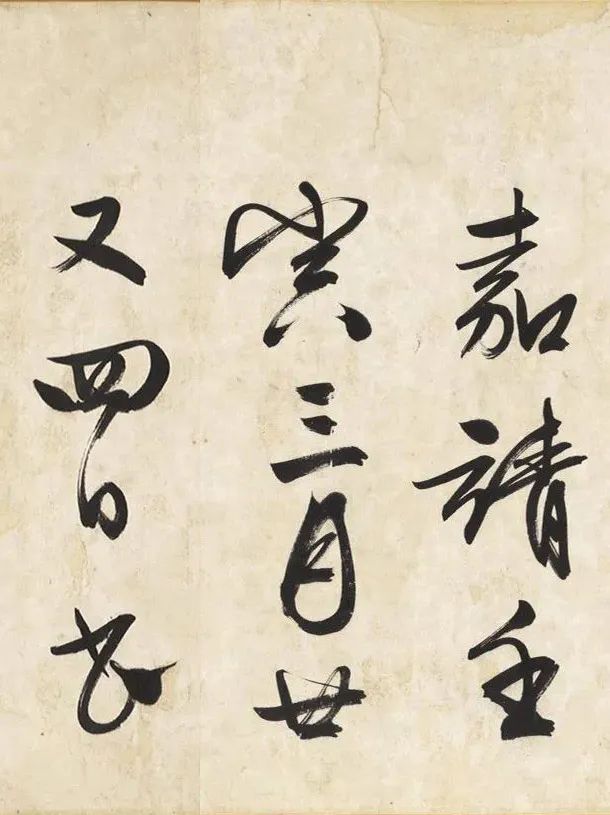 嘉靖壬
寅三月廿
又四日書